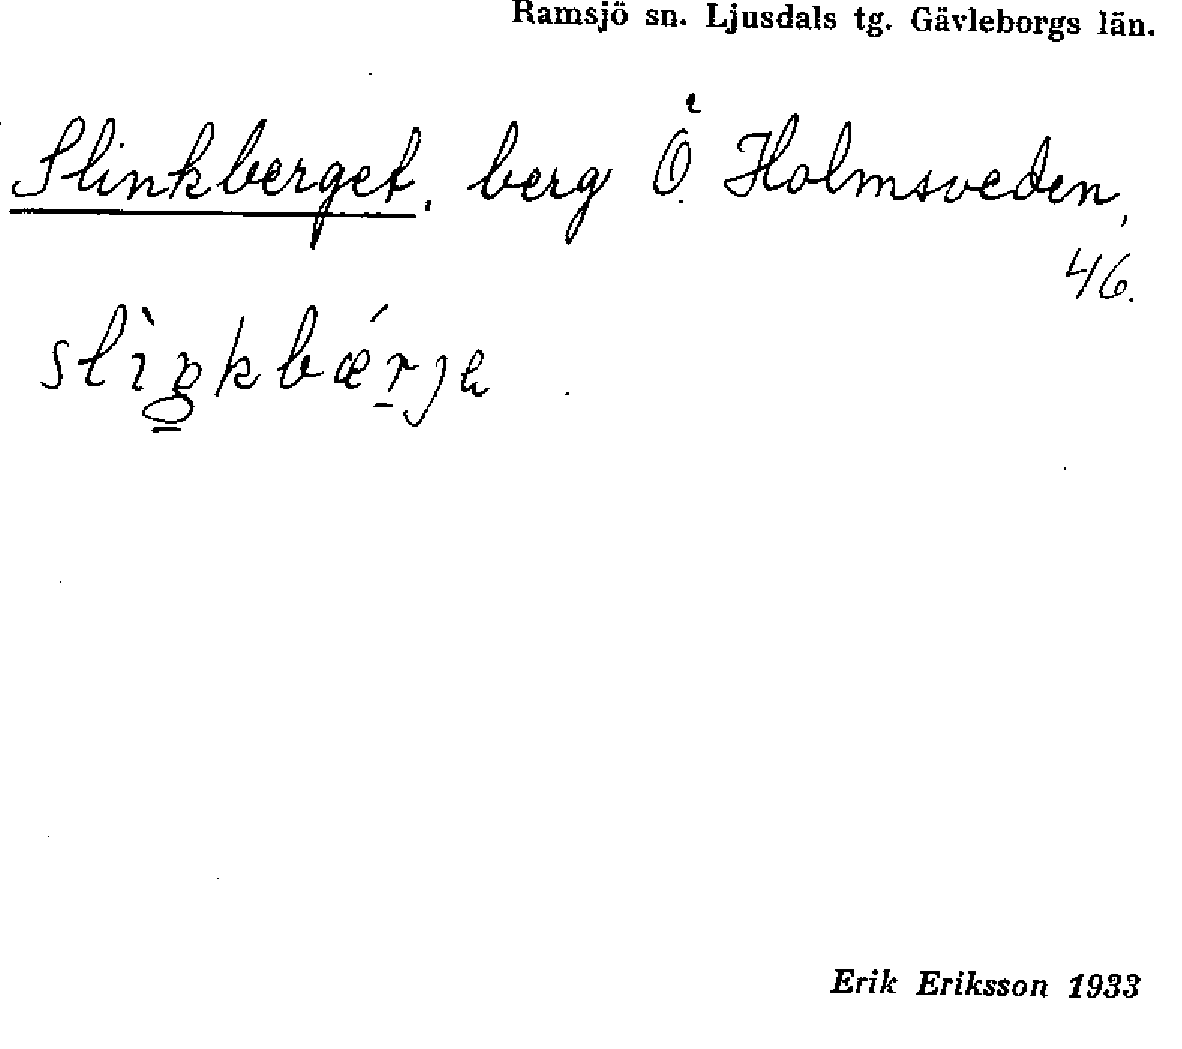 Ramsjö sn. Ljusdals tg. Gävleborgs län.
Slinkberget, berg Ö. Holmsveden,
46.
slìŋkbǽrje
Erik Eriksson 1933